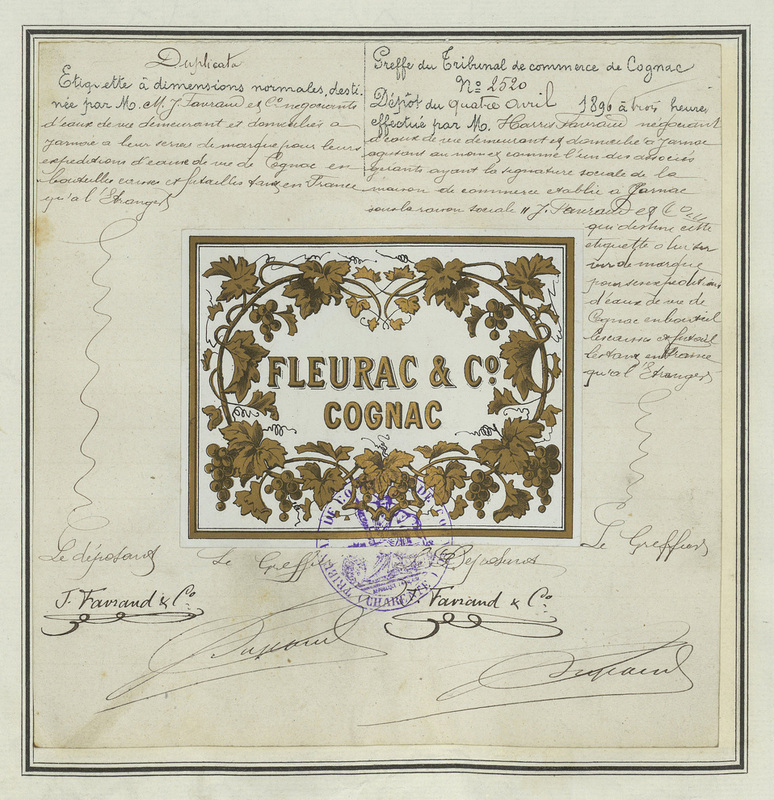 Duplicata
Etiquette à dimensions normales, desti-
née par M. M. J. Favraud et Cº négociants
d'eaux de vie demeurant et domiciliés à
Jarnac à leur servir de marque pour leurs
expéditions d'eaux de vie de Cognac en
bouteilles caisses et futailles tant en France
qu'à l'Etranger
Greffe du Tribunal de commerce de Cognac
Nº 2520
Dépôt du quatre Avril 1890 à trois heures
effectué par M. Harris Favraud négociant
d'eaux de vie demeurant et domicilié à Jarnac
agissant au nom et comme l'un des associés
gérants ayant la signature sociale de la
maison de commerce établie à Jarnac
sous la raison sociale " J. Favraud et Cº "
qui destine cette
étiquette à lui ser
vir de marque
pour ses expéditions
d'eaux de vie de
Cognac en bouteil
les caisses et futail
les tant en France
qu'à l'Etranger
FLEURAC & Cº
COGNAC
Le déposant
Le Greffier
Le Déposant
Le Greffier
J. Favraud & Cº
J. Favraud & Cº
(CHARENTE)